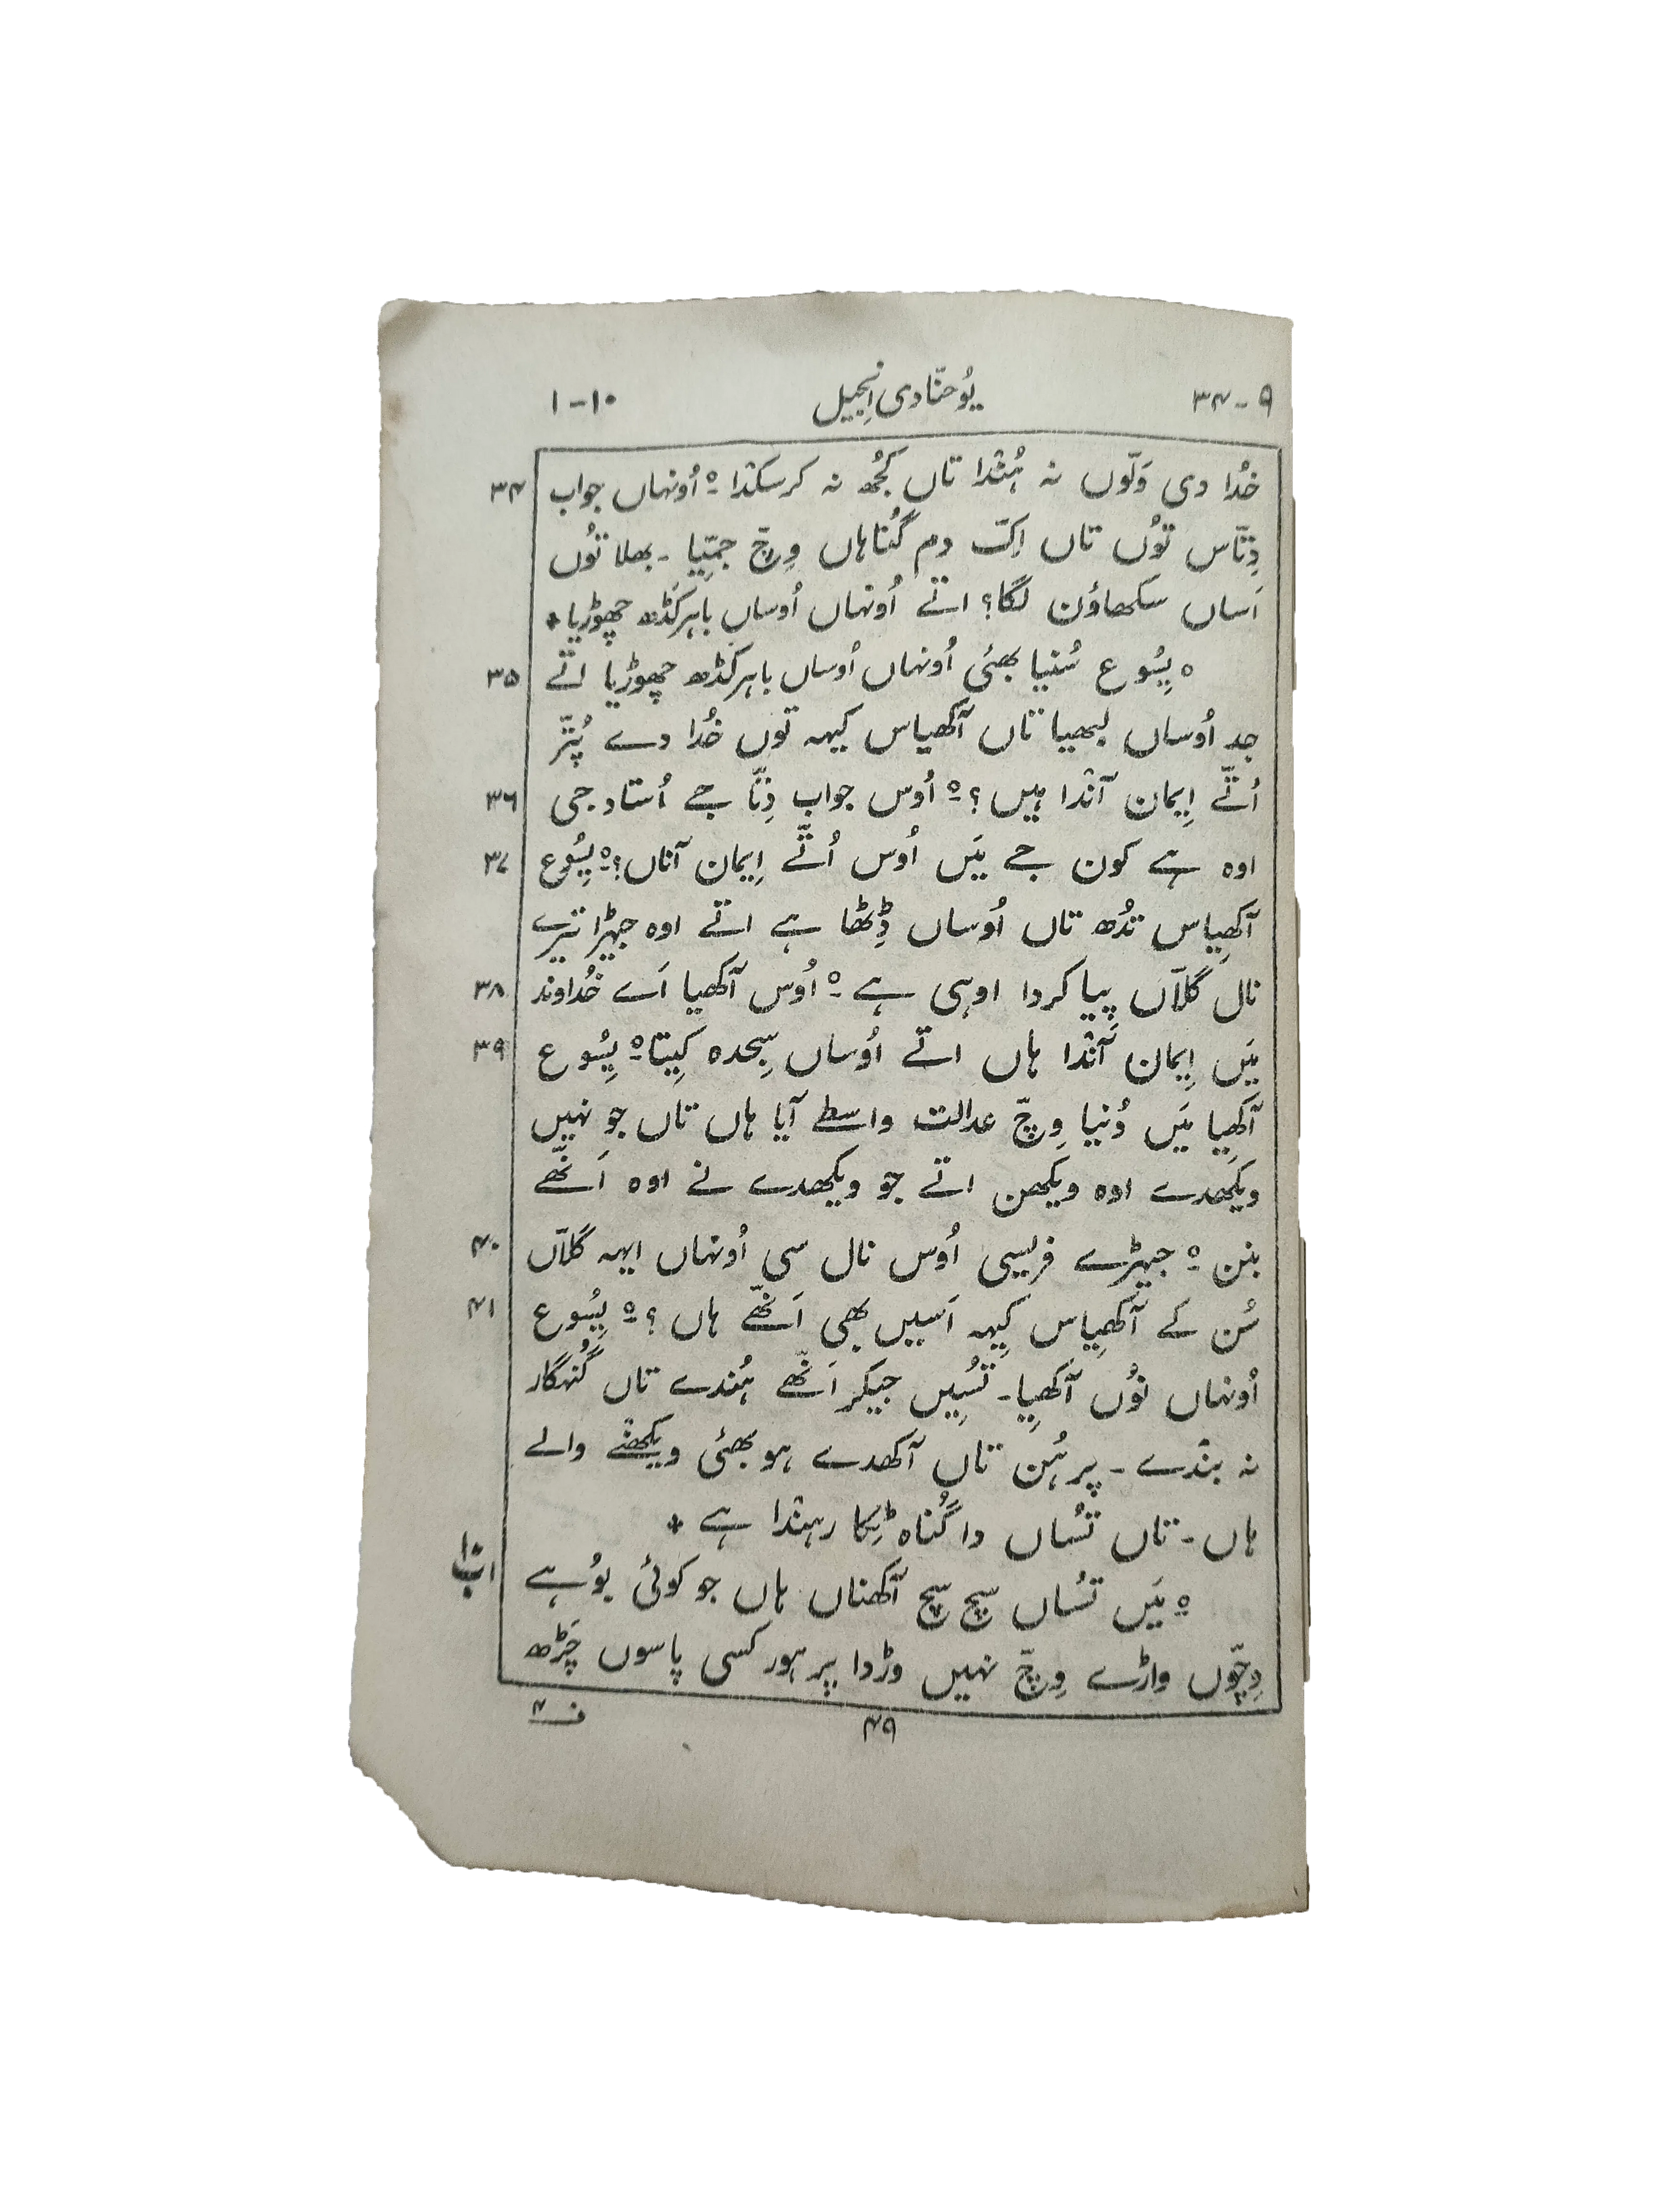 ۹-۳۴ یُوحنّا دی اِنجیل ۱۰-۱
خُدا دی وَلّوں نہ ہُندا تاں کُجُھ نہ کر سکدا ۔ ہ اُونہاں جواب ۳۴
دِتّاس تُوں تاں اِکّ دم گُناہاں وِچّ جمِّیا ۔ بھلا تُوں
اَساں سکھاؤن لگا؟ اتے اُونہاں اُوساں باہر کَڈھ چھوڑیا ٭
ہ یِسُوع سُنیا بھئی اُونہاں اُوساں باہر کڈھ چھوڑیا اتے ۳۵
جد اُوساں لبھیا تاں آکھیاس کیہہ توں خُدا دے پُتّر
اُتّے اِیمان آندا ہیں؟ ۔ ہ اُوس جواب دِتّا جے اُستاد جی ۳۶
اوہ ہے کون جے مَیں اُوس اُتّے اِیمان آناں؟ ۔ ہ یِسُوع ۳۷
آکھِیاس تُدھ تاں اُوساں ڈِٹھا ہے اتے اوہ جہڑا تیرے
نال گلاّں پیا کردا اوہی ہے ۔ ہ اُوس آکھیا اَے خُداوند ۳۸
مَیں اِیمان آندا ہاں اتے اُوساں سِجدہ کِیتا ۔ ہ یِسُوع ۳۹
آکھِیا مَیں دُنیا وِچّ عدالت واسطے آیا ہاں تاں جو نہیں
ویکھدے اوہ ویکھن اتے جو ویکھدے نے اوہ اَنّھے
بنن ۔ ہ جیہڑے فریسی اُوس نال سی اُونہاں ایہہ گلاّں ۴۰
سُن کے آکھِیاس کِیہہ اَسیں بھی اَنّھے ہاں؟ ۔ ہ یِسُوع ۴۱
اُونہاں نُوں آکھِیا ۔ تُسِیں جیکر اَنّھے ہُندے تاں گُنہگار
نہ بندے ۔ پر ہُن تاں آکھدے ہو بھئی ویکھنے والے
ہاں ۔ تاں تُساں دا گُناہ ٹِکا رہندا ہے ٭
ہ مَیں تُساں سچ سچ آکھناں ہاں جو کوئی بُوہے ۱ب۱۰
وِچّوں واڑے وِچّ نہیں وڑدا پر ہور کسی پاسوں چَڑھ
۴۹